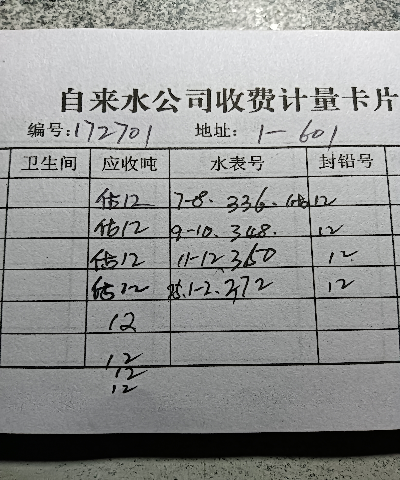 自来水公司收费计量卡片
编号:172701 地址: 1-601
卫生间 应收吨 水表号 封铅号
估12 7-8. 336. 估12
估12 9-10. 348. 12
估12 11-12 360 12
估12 25.1-2. 372 12
12
12
12
12